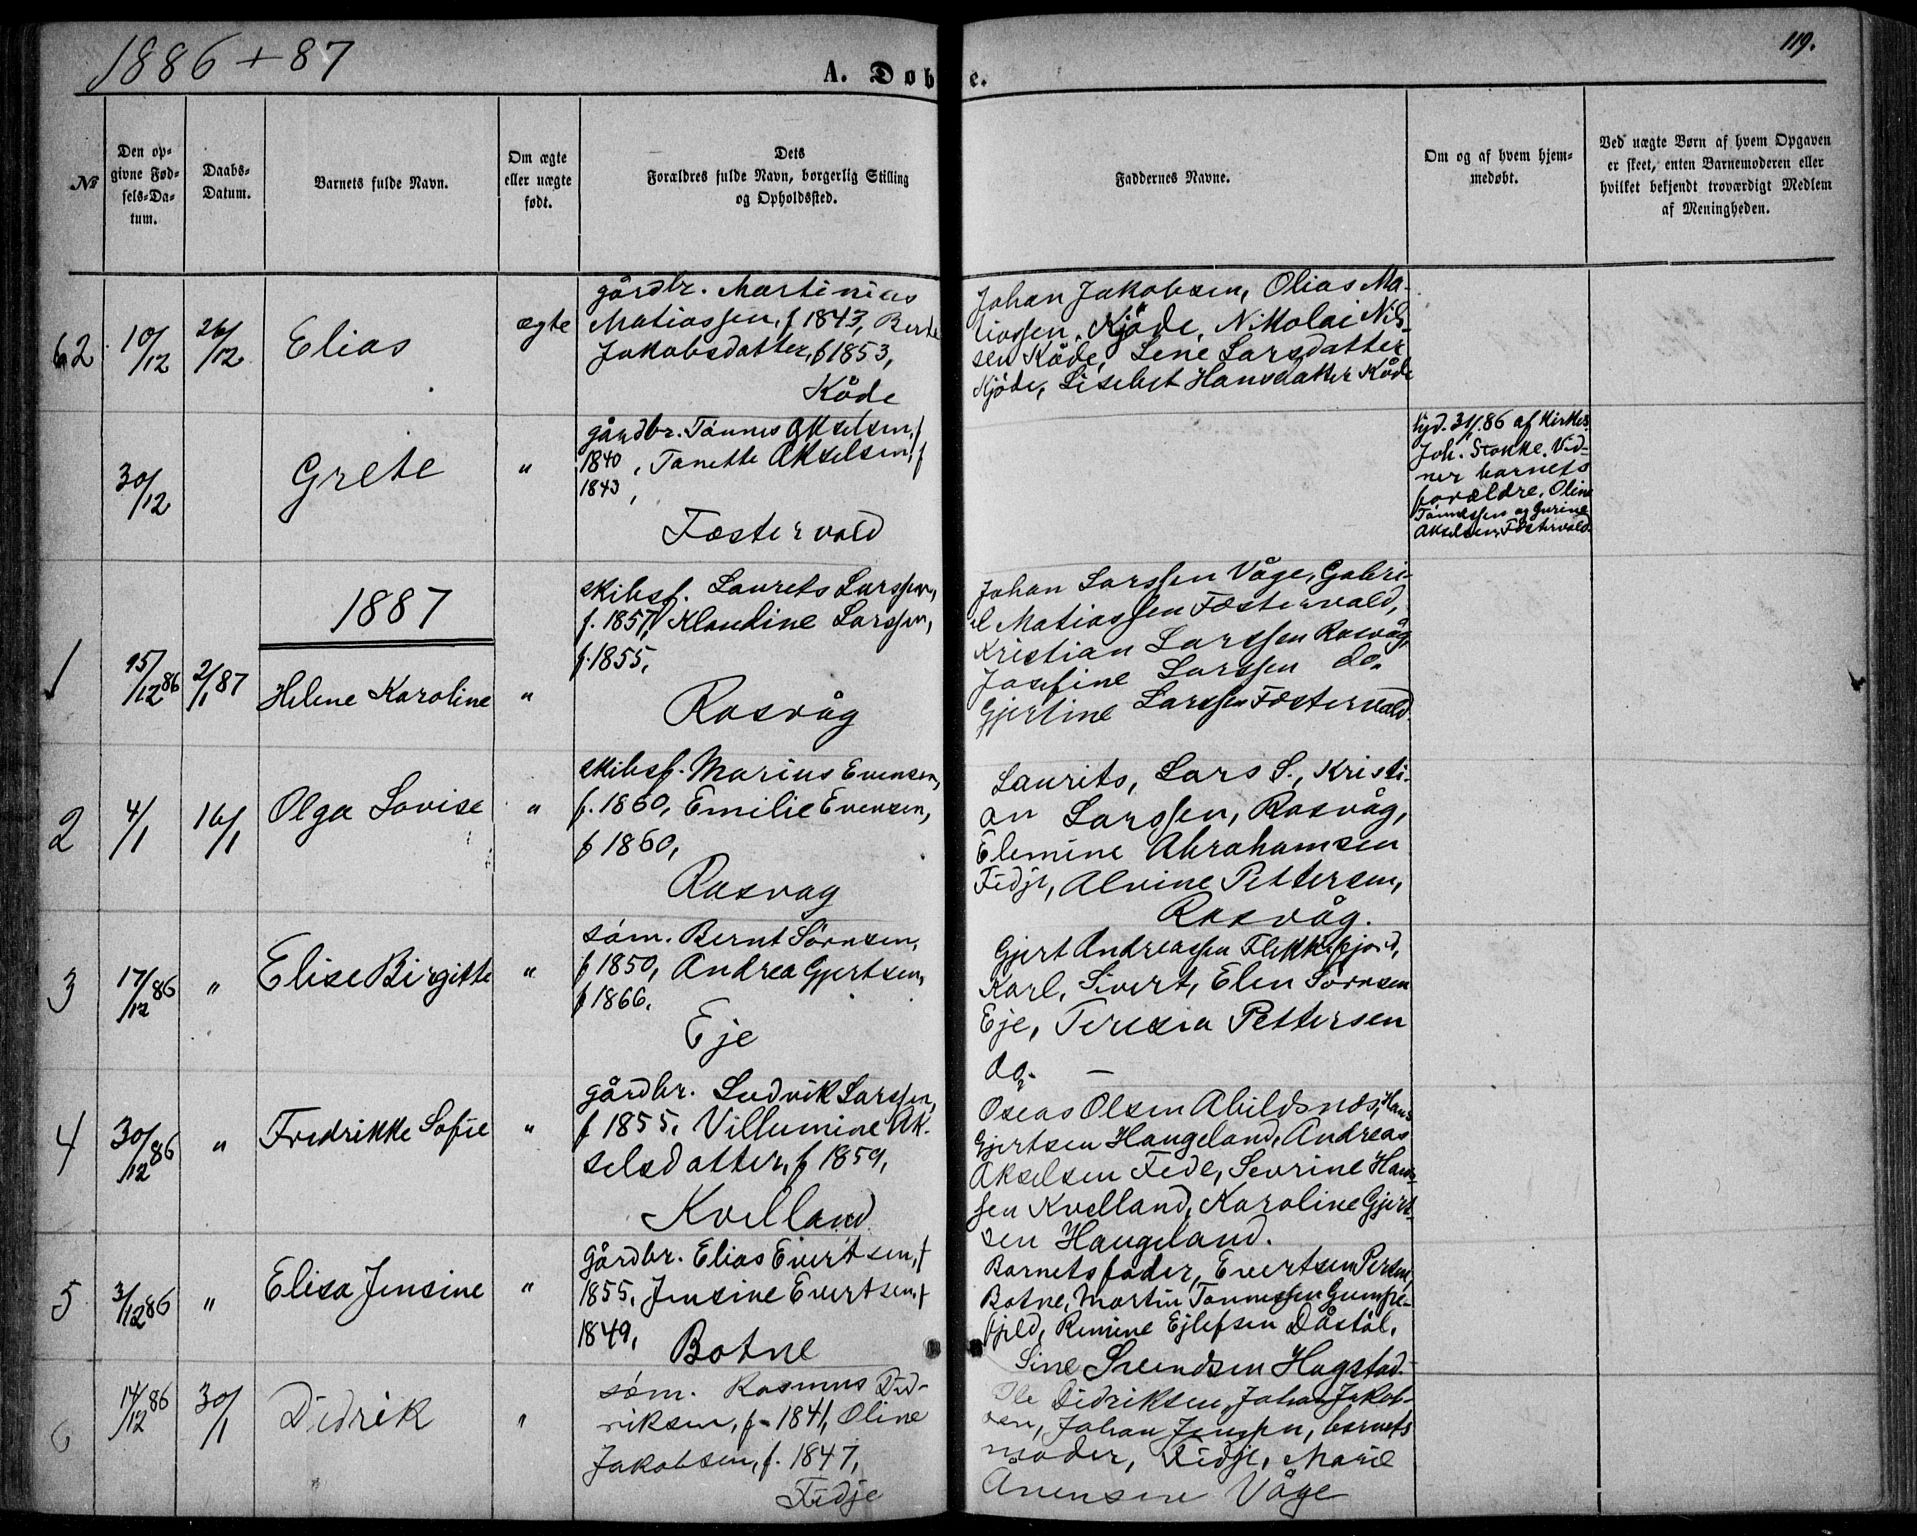 1886 + 87
119.
A. Døbte.
№
Den op-
givne Fød-
sels-Da-
tum.
Daabs-
Datum.
Barnets fulde Navn.
Om ægte
eller uægte
født.
Dets
Forældres fulde Navn, borgerlig Stilling
og Opholdssted.
Faddernes Navne.
Om og af hvem hjem-
medøbt.
Ved uægte Børn af hvem Opgaven
er skeet, enten Barnemoderen eller
hvilket bekjendt troværdigt Medlem
af Meningheden.
62
10/12
26/12
Elias
ægte
gårdbr. Martinius
Matiassen, f 1843, Berte
Jakobsdatter, f 1853,
Kåde
Johan Jakobsen, Olias Ma-
tiassen, Kjöde, Nikolai Nil-
sen Kåde, Lene Larsdatter
Kjöde, Liselset Hansdatter Kåde
30/12
Grete
"
gårdbr. Tönnes Akselsen, f
1840, Tanette Akselsen, f
1843,
Fæstervold
31/86 af Kirkes.
Joh. Stokke. Vid-
ner barnets
forældre, Oline
Tönnessen og Gurine
Akselsen, Föstervold.
1887
1
15/12 86
2/1 87
Helene Karoline
"
skibsf. Laurets Larssen,
f. 1857, Klaudine Larssen,
f. 1855,
Rasvåg
Johan Larssen Våge, Gabri-
el Matiassen Fæstervold,
Kristian Larssen Rasvåg,
Josefine Larssen do.
Gjertine Larssen Fæstervold.
2
4/1
16/1
Olga Lovise
"
skibsf. Marius Evensen,
f. 1860, Emilie Evensen,
f 1860,
Rasvag
Laurits, Lars S., Kristi-
an Larssen, Rasvåg,
Elemine Abrahamsen
Fidje, Alvine Pettersen,
Rasvåg.
3
17/12 86
"
Elise Birgitte
"
söm. Bernt Sörnsen,
f 1850, Andrea Gjertsen,
f 1866.
Eje
Gjert Andreassen Flekkefjord,
Karl, Sivert, Elen Sörnsen
Eje, Teresia Pettersen
do. —
4
30/12 86
"
Fredrikke Sofie
"
gårdbr. Ludvik Larssen,
f 1855, Villumine Ak-
selsdatter, f 1859,
Kvelland
Oseas Olsen Abildsnes, Hans
Gjertsen Haugeland, Andreas
Akselsen Fede, Sevrine Han-
sen Kvelland, Karoline Gjert-
sen Haugeland.
5
3/12 86
"
Elisa Jensine
"
gårdbr. Elias Evertsen, f
1855, Jensine Evertsen, f
1849,
Botne
Barnets fader, Evertsen Persen,
Botne, Martin Tönnessen Gumpe-
fjeld, Remine Ejlefsen Dåstöl,
Sine Svendsen Hagstad.
6
14/12 86
30/1
Didrik
"
söm. Rasmus Did-
riksen, f. 1841, Oline
Jakobsen, f. 1847,
Fidje
Ole Didriksen, Johan Jakob-
sen, Johan Jenssen, barnets
moder, Fidje, Marie
Anensen Våge